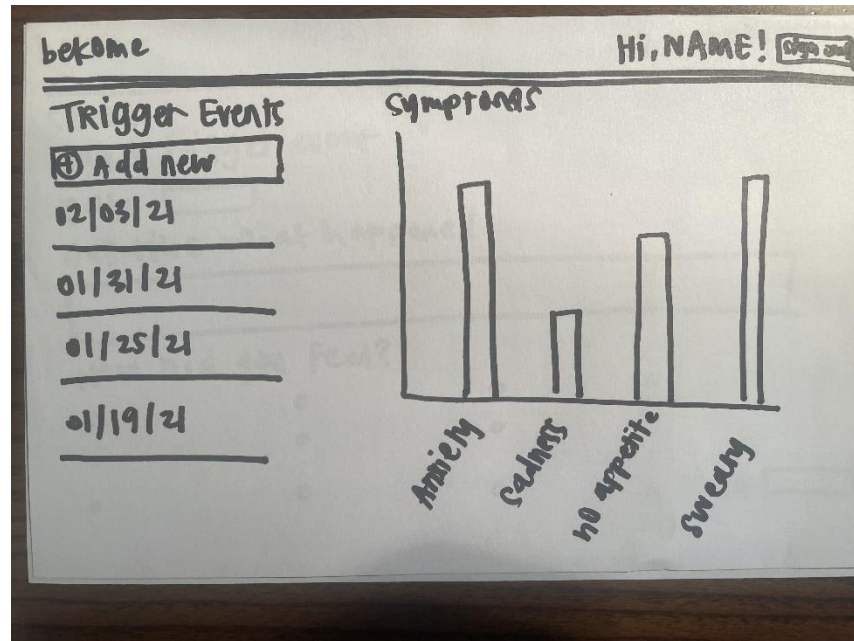 bekome
Hi, NAME! Sign out
Trigger Events
⊕ Add new
02/03/21
01/31/21
01/25/21
01/19/21
Symptoms
Anxiety
Sadness
no appetite
Sweaty